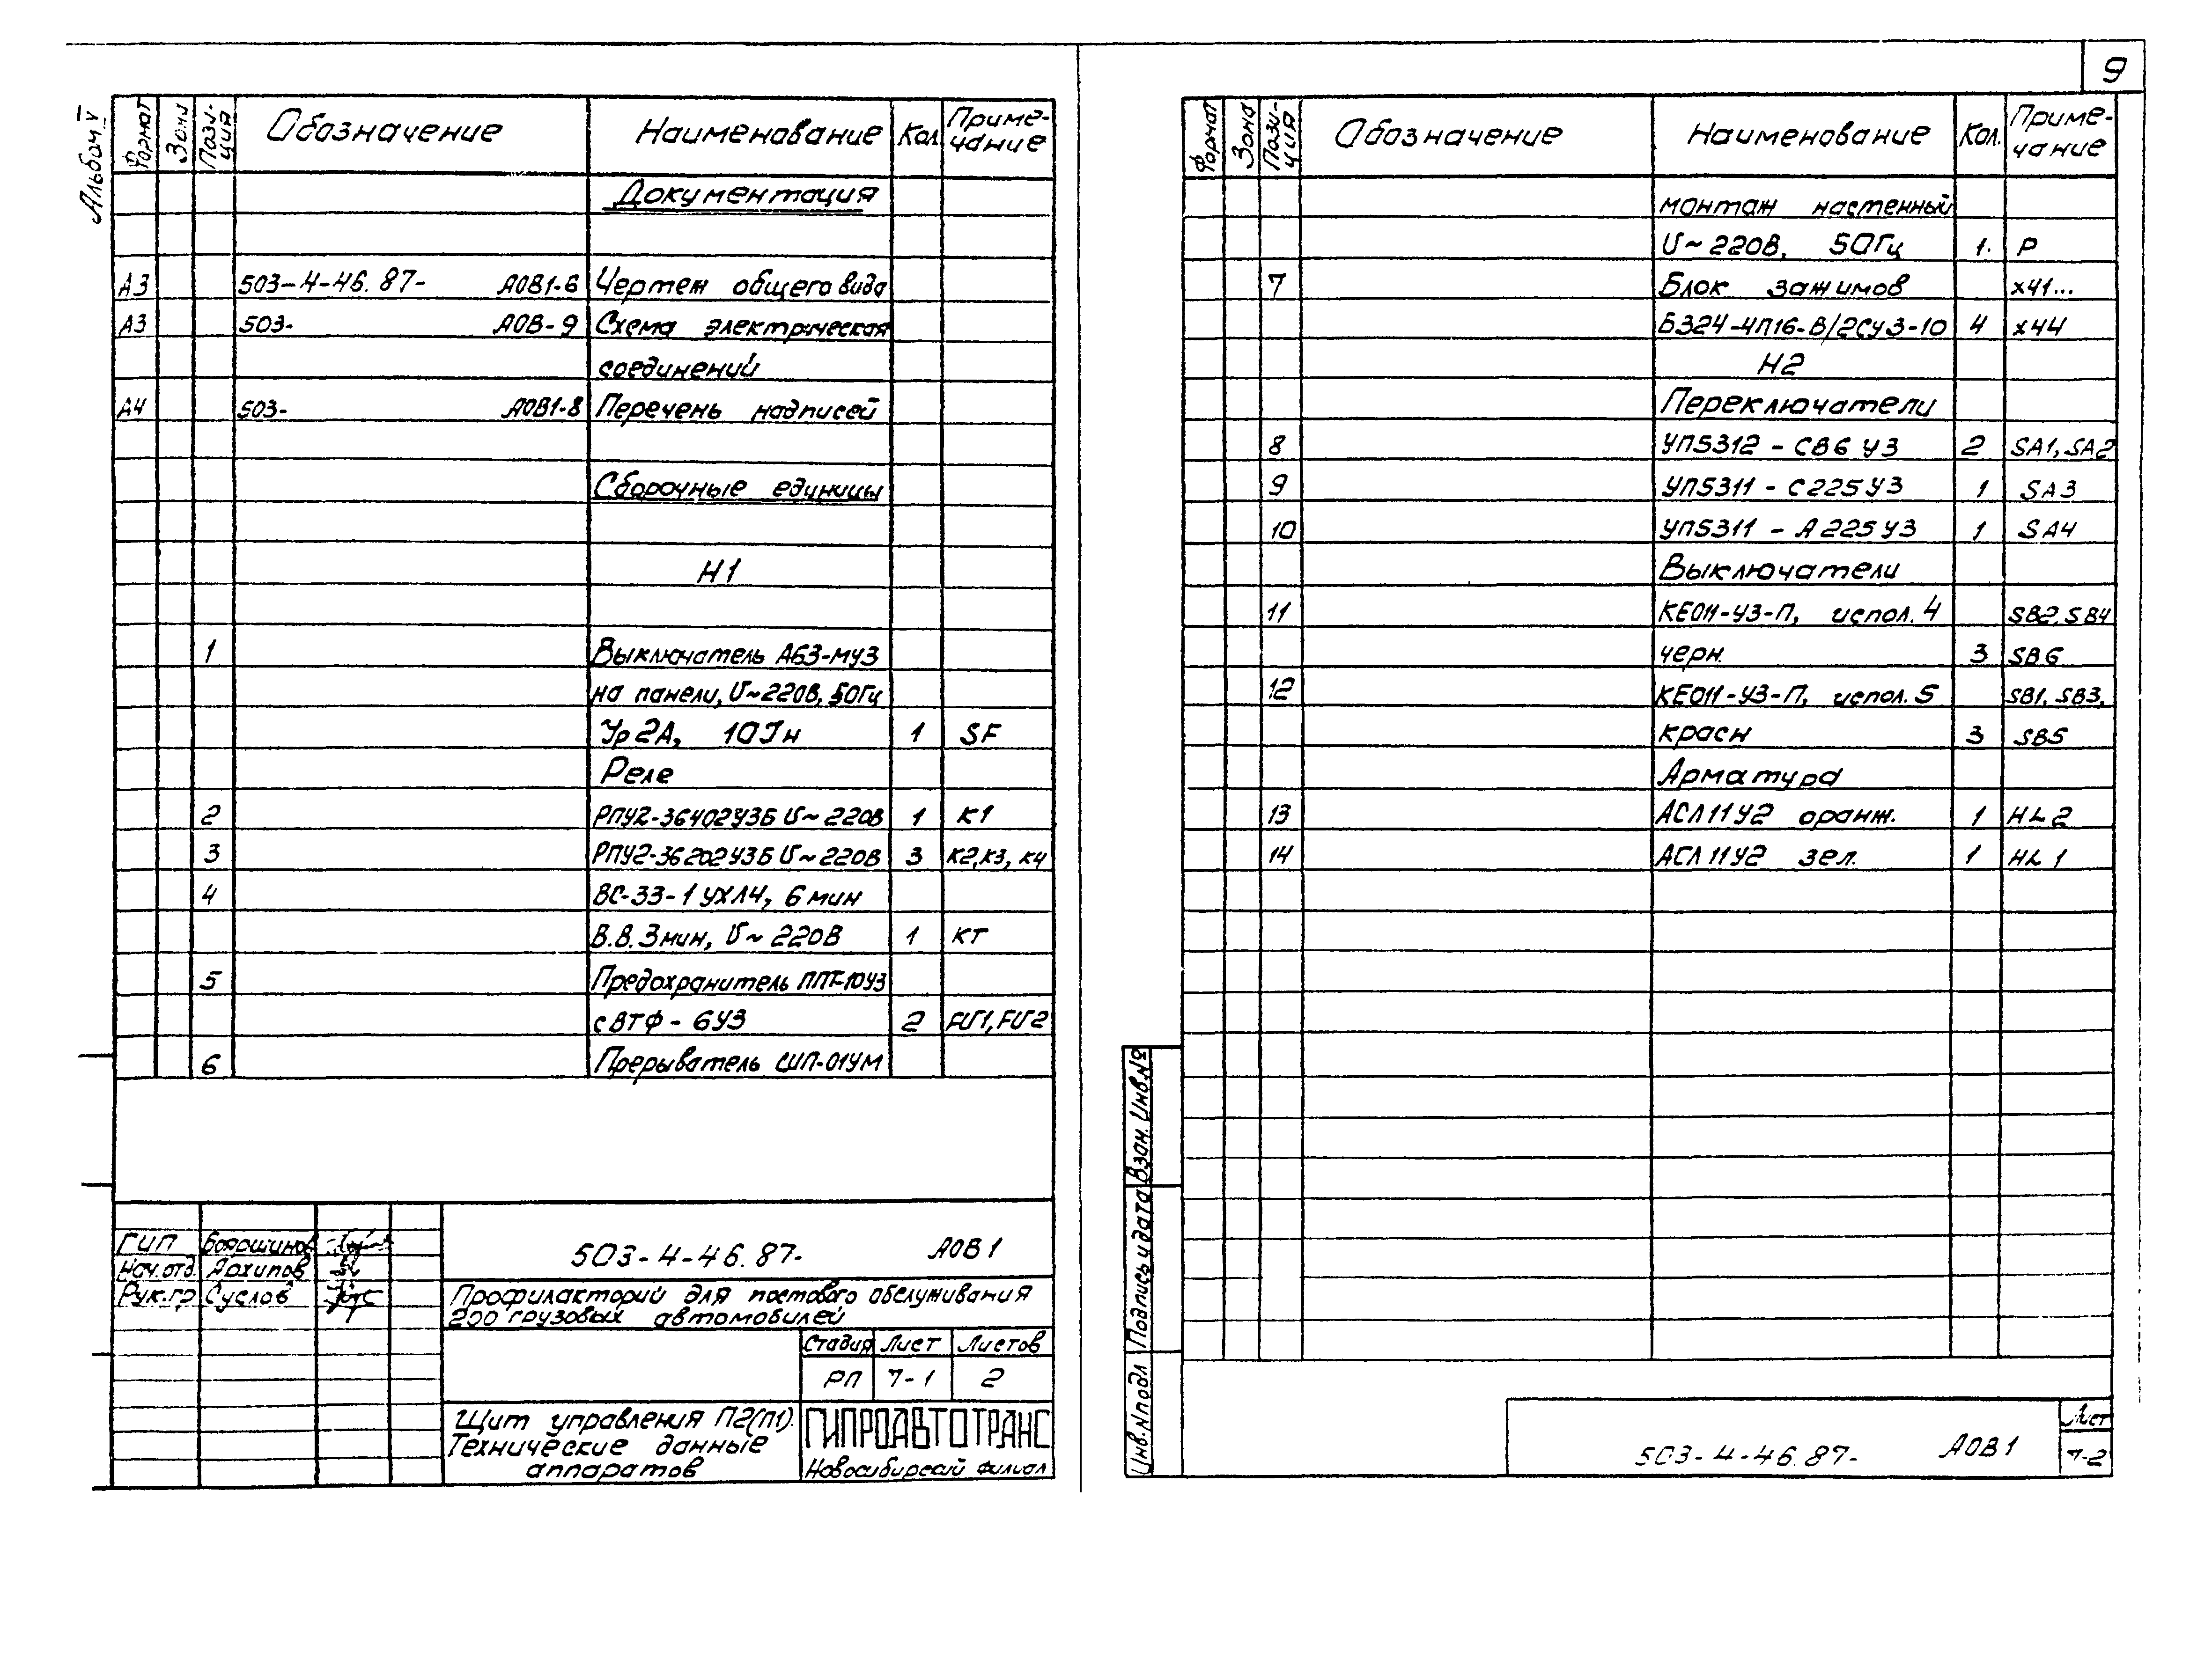 9
Альбом V
Формат Зона Пози-ция Обозначение Наименование Кол. Приме-чание
Документация
А3 503-4-46.87- АОВ1-6 Чертеж общего вида
А3 503- АОВ-9 Схема электрическая
соединений
А4 503- АОВ1-8 Перечень надписей
Сборочные единицы
Н1
1 Выключатель А63-МУ3
на панели, U~220В, 50Гц
Ур 2А, 10Jн 1 SF
Реле
2 РПУ2-36402У3Б U~220В 1 К1
3 РПУ2-36202У3Б U~220В 3 К2,К3,К4
4 ВС-33-1УХЛ4, 6 мин
В.В. 3мин, U~220В 1 КТ
5 Предохранитель ППТ-10У3
с ВТФ-6У3 2 FU1,FU2
6 Прерыватель СИП-01УМ
ГИП Бояршинов
Нач.отд. Архипов
Рук.гр Суслов
503-4-46.87- АОВ1
Профилакторий для постового обслуживания
200 грузовых автомобилей
Стадия Лист Листов
РП 7-1 2
Щит управления П2(П1).
Технические данные
аппаратов
ГИПРОАВТОТРАНС
Новосибирсий филиал
Формат Зона Пози-ция Обозначение Наименование Кол. Приме-чание
монтаж настенный
U~220В, 50Гц 1. Р
7 Блок зажимов х41...
БЗ24-4П16-В/2СУ3-10 4 х44
Н2
Переключатели
8 УП5312-СВ6 У3 2 SA1, SA2
9 УП5311-С225У3 1 SA3
10 УП5311-А225У3 1 SA4
Выключатели
11 КЕ011-У3-П, испол. 4 SB2, SB4
черн. 3 SB6
12 КЕ011-У3-П, испол. 5 SB1, SB3,
красн 3 SB5
Арматура
13 АСЛ11У2 оранж. 1 HL2
14 АСЛ11У2 зел. 1 HL1
Инв.№подл Подпись и дата Взам. Инв.№
503-4-46.87- АОВ1
Лист
7-2